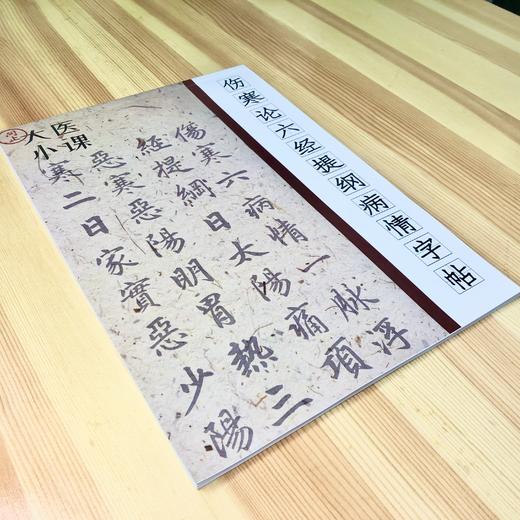 伤寒论六经提纲病情字帖
大医
小课
傷寒六病情一脉浮
經提綱日太陽痛項
惡寒惡陽明胃熱三
寒二日家實惡少陽